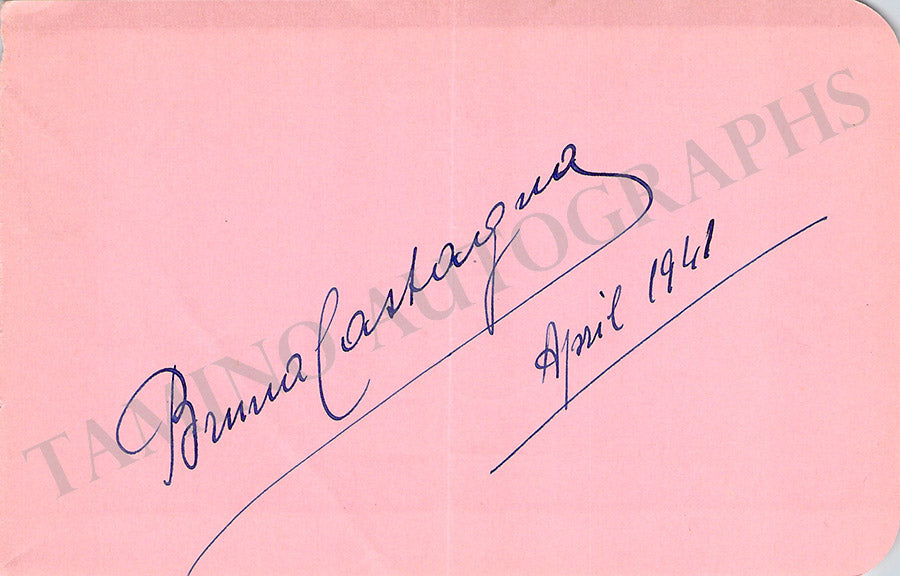 Bruna Castagna
April 1941
TAMINO AUTOGRAPHS